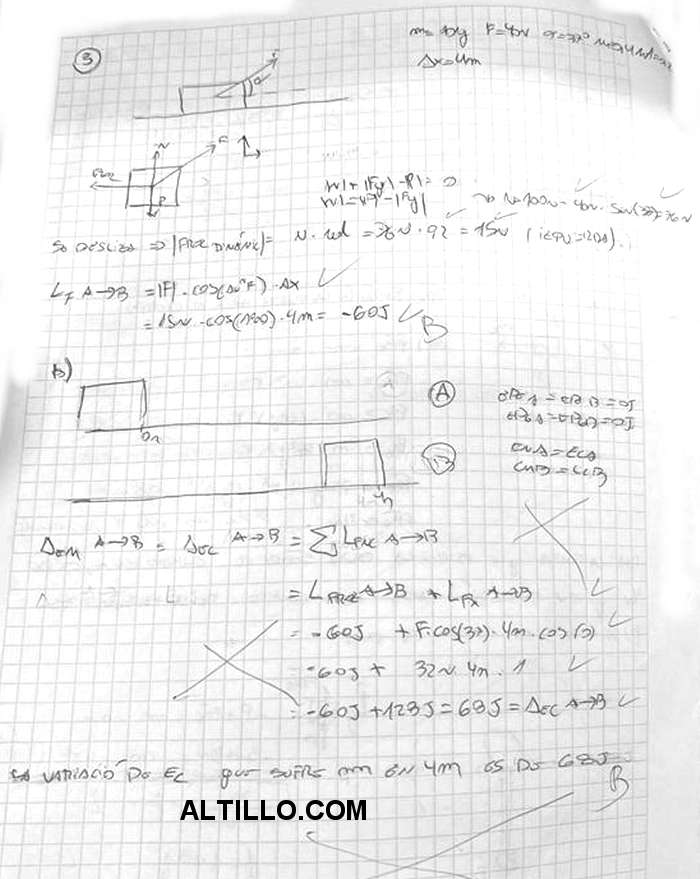 3
m= F=40N α=37°
Δx=4m
F
α
N
F
P
|N|+|Fy|-|P|= 0
|N|=|P|-|Fy|
N=100N - 40N. Sen(37)=76N
Se DESLIZA => |FROZ DINÁMIC|= N. μd = 76N . 0,2 = 15N
L A->B = |F| . cos( ) . Δx
= 15N . cos(180) . 4m = -60J
B
b)
0m
4m
A
B
EPE A = EPE B = 0J
EPG A = EPG B = 0J
EMA = ECA
EMB = ECB
ΔEM A->B = ΔEC A->B = ∑ LFNC A->B
= LFROZ A->B + LFx A->B
= -60J + F.cos(37). 4m. cos(0)
-60J + 32N. 4m . 1
= -60J +128J = 68J = ΔEC A->B
VARIACIÓ DE EC que SUFRE EN 4M ES DE 68J
B
ALTILLO.COM